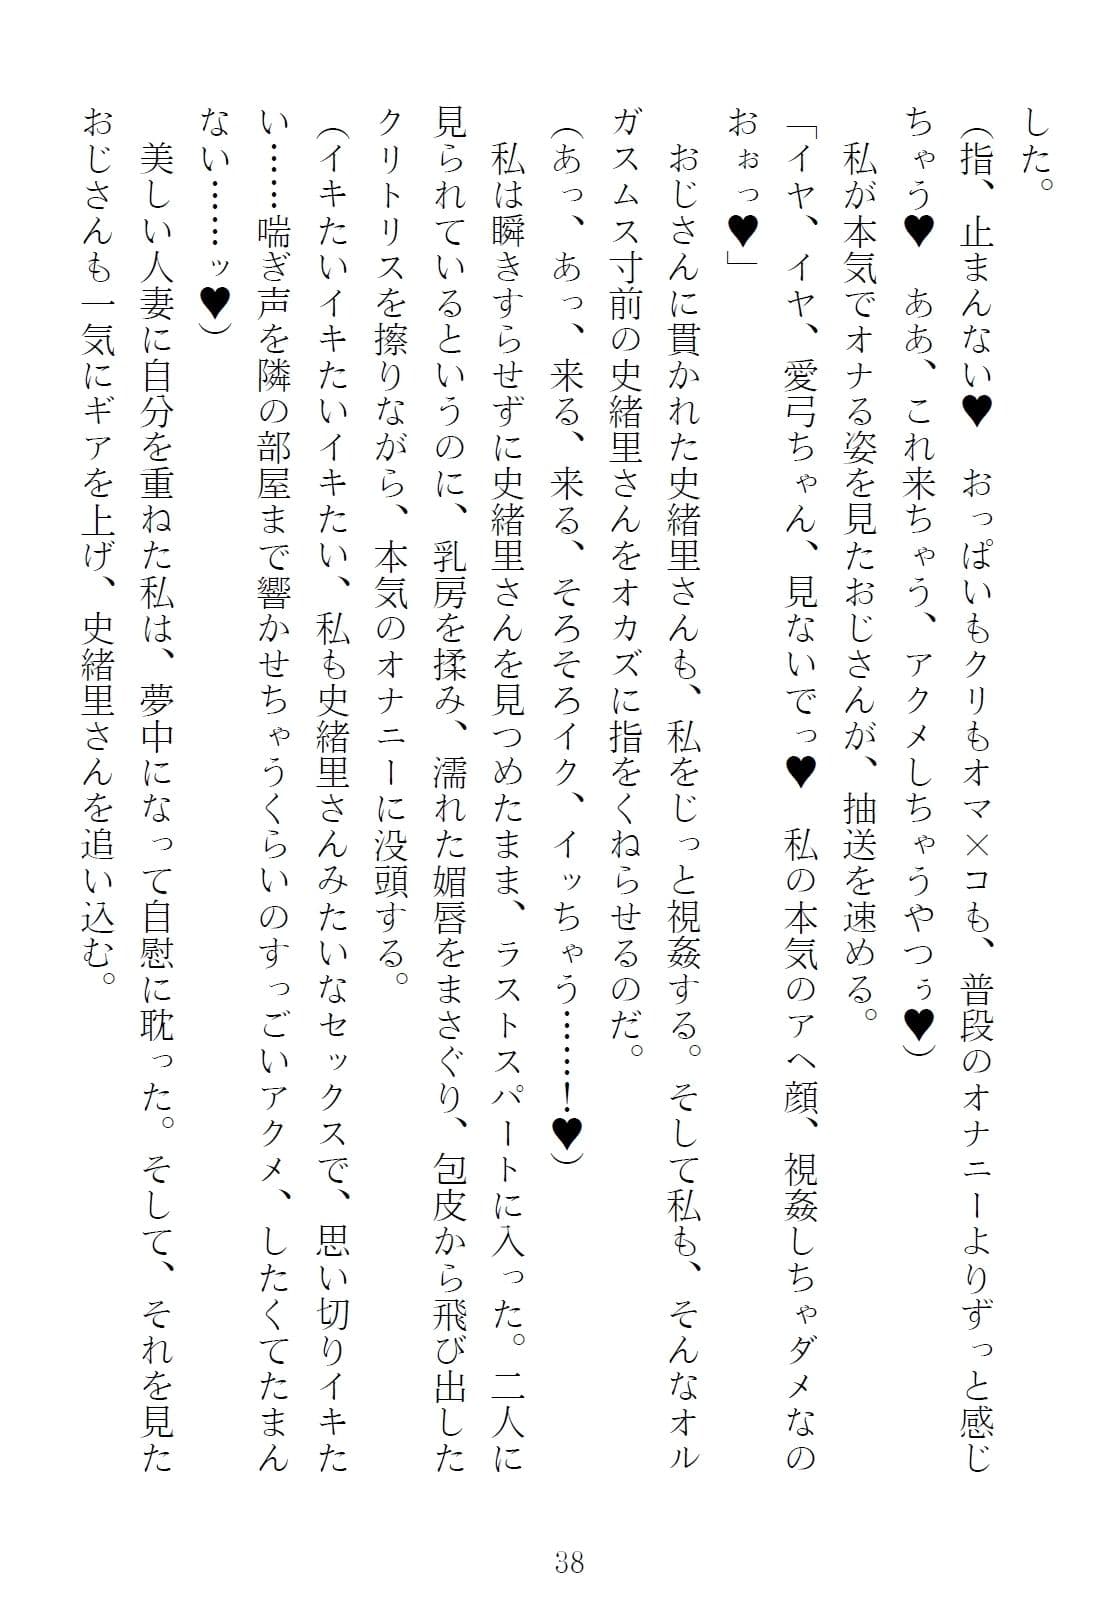 した。
（指、止まんない♥　おっぱいもクリもオマ×コも、普段のオナニーよりずっと感じ
ちゃう♥　ああ、これ来ちゃう、アクメしちゃうやつぅ♥）
　私が本気でオナる姿を見たおじさんが、抽送を速める。
「イヤ、イヤ、愛弓ちゃん、見ないでっ♥　私の本気のアヘ顔、視姦しちゃダメなの
おぉっ♥」
　おじさんに貫かれた史緒里さんも、私をじっと視姦する。そして私も、そんなオル
ガスムス寸前の史緒里さんをオカズに指をくねらせるのだ。
（あっ、あっ、来る、来る、そろそろイク、イッちゃう……！♥）
　私は瞬きすらせずに史緒里さんを見つめたまま、ラストスパートに入った。二人に
見られているというのに、乳房を揉み、濡れた媚唇をまさぐり、包皮から飛び出した
クリトリスを擦りながら、本気のオナニーに没頭する。
（イキたいイキたいイキたい、私も史緒里さんみたいなセックスで、思い切りイキた
い……喘ぎ声を隣の部屋まで響かせちゃうくらいのすっごいアクメ、したくてたまん
ない……ッ♥）
　美しい人妻に自分を重ねた私は、夢中になって自慰に耽った。そして、それを見た
おじさんも一気にギアを上げ、史緒里さんを追い込む。
38